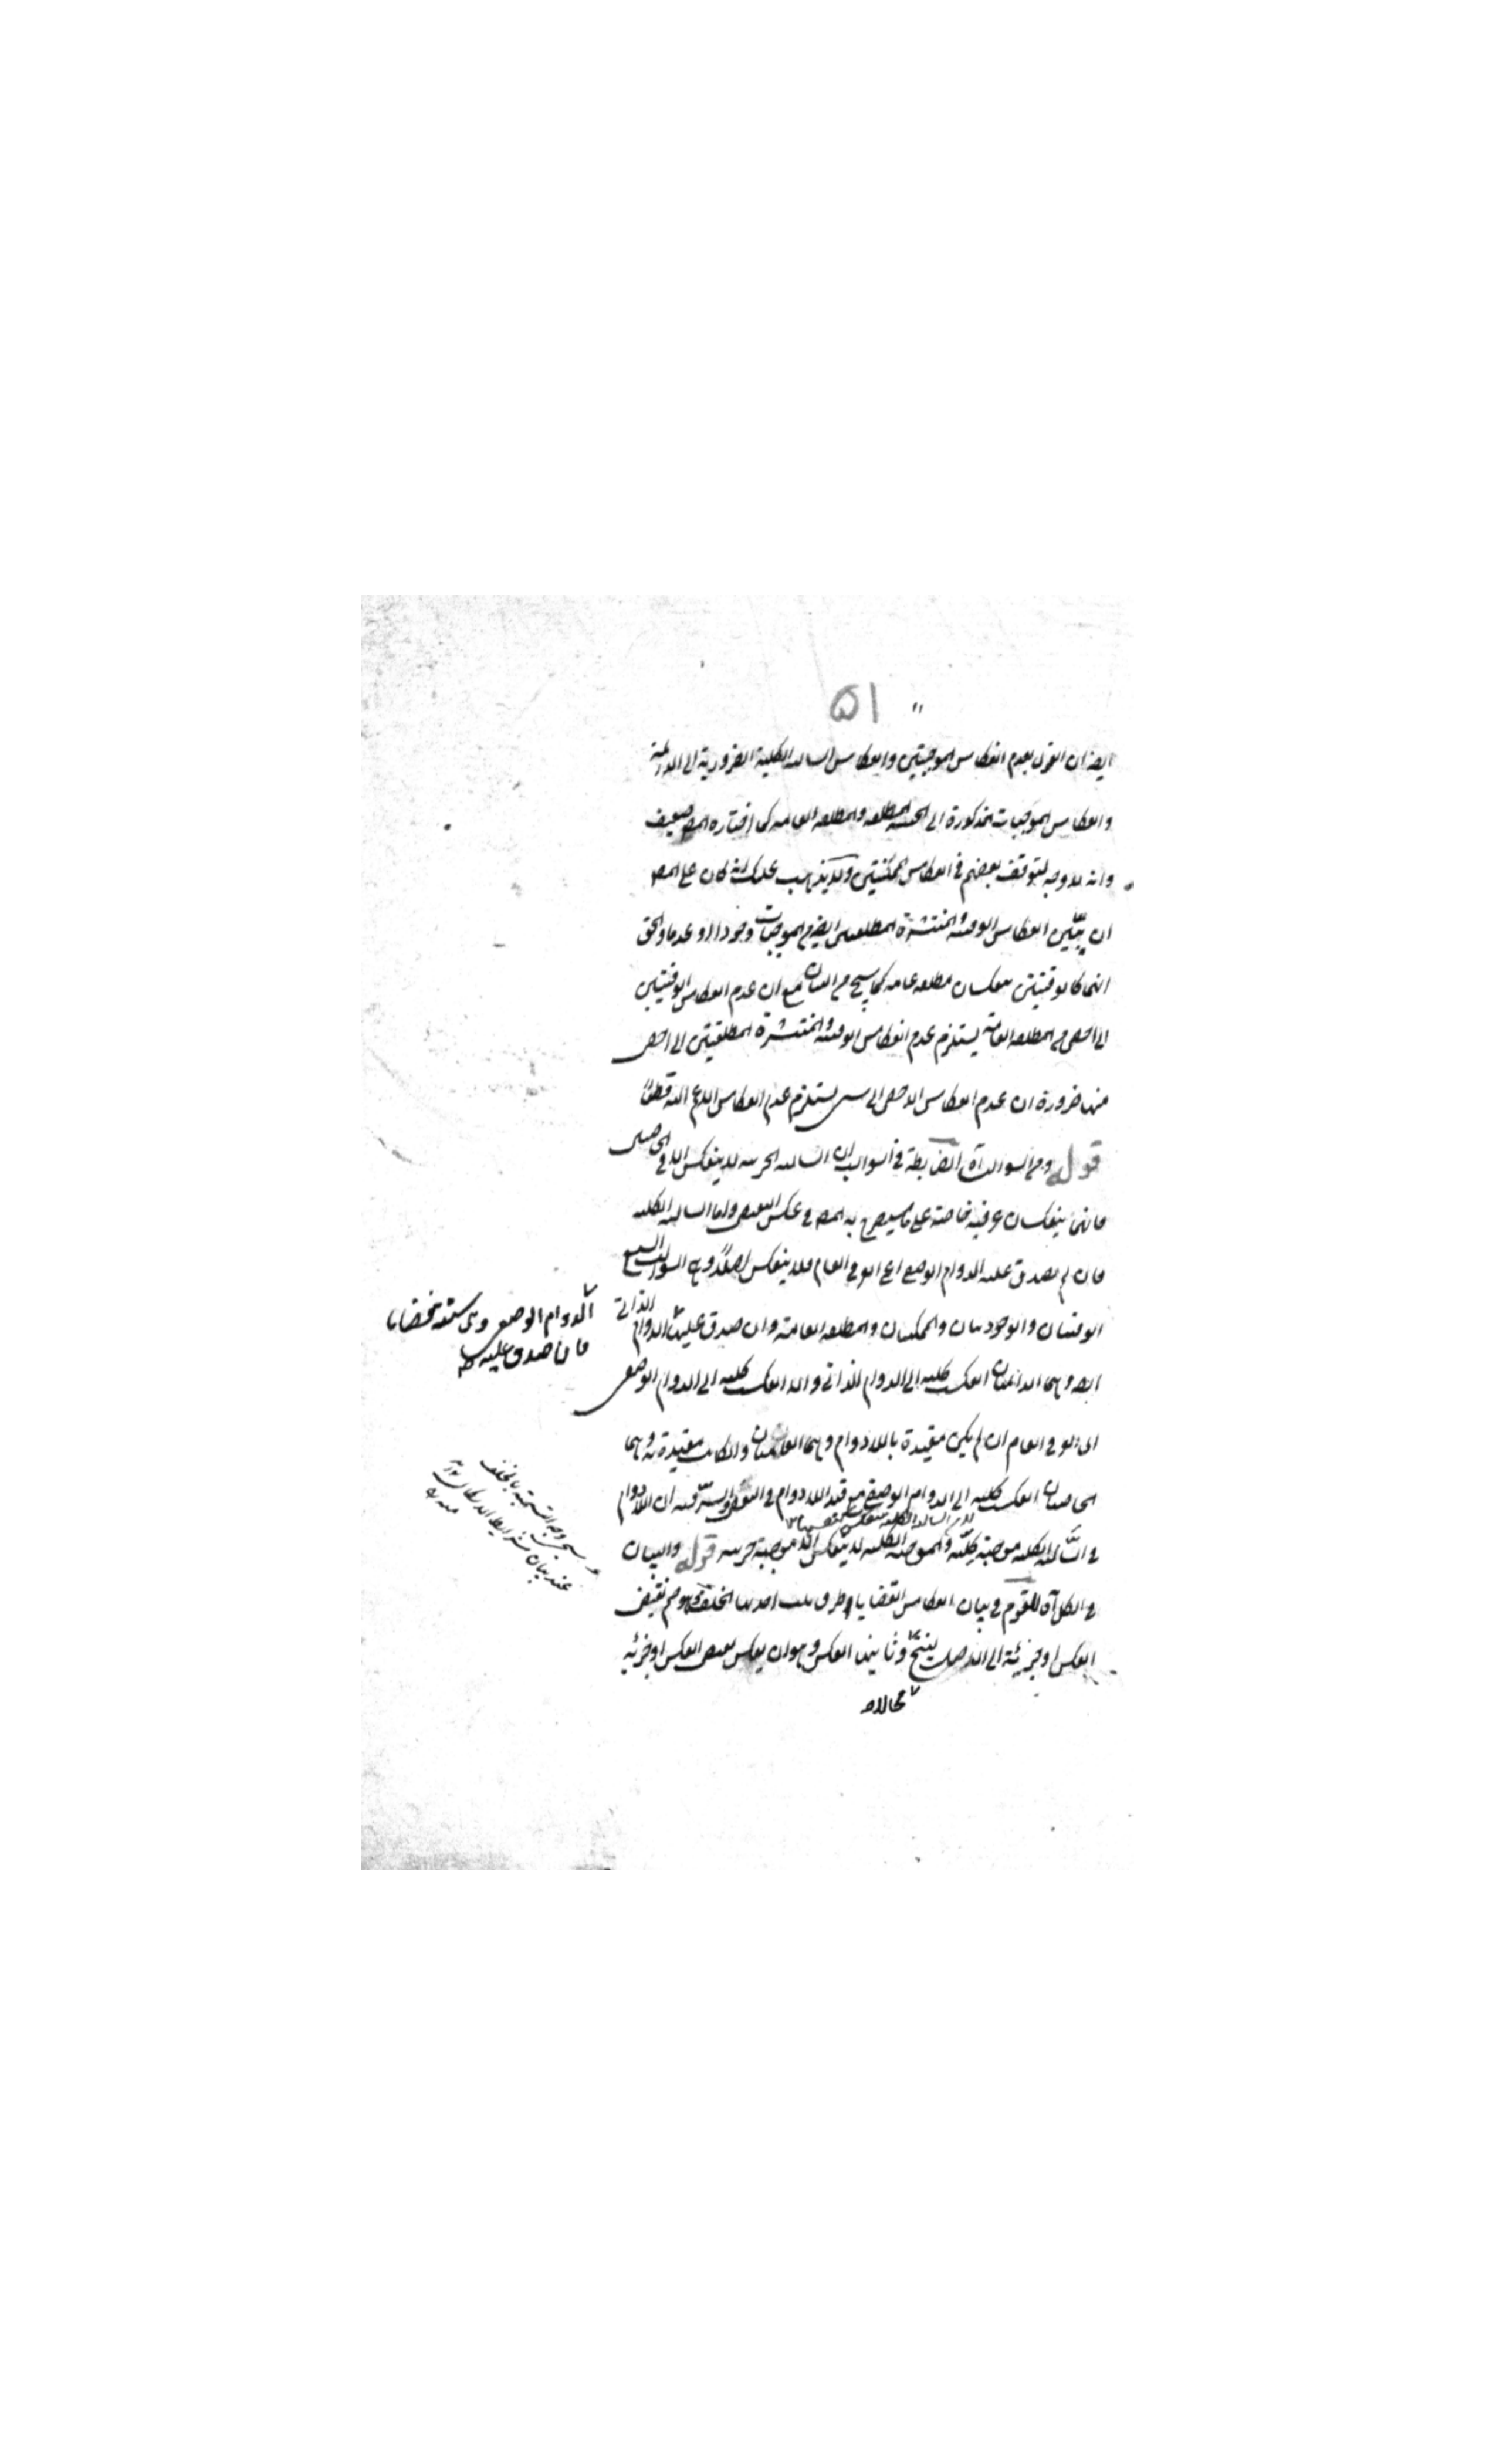 ۵۱
ايضا ان القول بعدم انعكاس الموجبتين وانعكاس السالبة الكلية الضرورية الى الدائمة
وانعكاس الموجبات المذكورة الى الحينية المطلقة والمطلقة العامة كما اختاره المص ضعيف
وانه لا وجه لتوقف بعضهم في انعكاس الممكنتين ولا يذهب عليك انه كان على المص
ان يبيّن انعكاس الوقتية والمنتشرة المطلقتين ايضا في الموجبات وجودا او عدما والحق
انهما كالوقتيتين تنعكسان مطلقة عامة كما سيجئ مع ان عدم انعكاس الوقتيتين
الى اخص من المطلقة العامة يستلزم عدم انعكاس الوقتية والمنتشرة المطلقتين الى اخص
منها ضرورة ان عدم انعكاس الاخص الى شئ يستلزم عدم انعكاس الاعم اليه قطعا
قوله ومن السوالب آه الضابطة في السوالب ان السالبة الجزئية لا ينعكس الا في الخاصتين
فانهما ينعكسان عرفية خاصة على ما سيصرح به المص في عكس النقيض واما السالبة الكلية
فان لم يصدق عليه الدوام الوصفي اعني العرفي العام فلا ينعكس اصلا وهي السوالب السبع
الوقتيتان والوجوديتان والممكنتان والمطلقة العامة وان صدق عليها الدوام الذاتي
ايضا وهما الدائمتان انعكست كلية الى الدوام الذاتي والا انعكست كلية الى الدوام الوصفي
اى العرفي العام ان لم يكن مقيدة باللادوام وهما العامتان وان كانت مقيدة به وهما
الخاصتان انعكست كلية الى الدوام الوصفي مع قيد اللادوام في البعض والسرّ فيه ان اللادوام
في السالبة الكلية موجبة كلية والموجبة الكلية لا ينعكس الا موجبة جزئية قوله والبيان
في الكل آه للقوم في بيان انعكاس القضايا طرق ثلث احدها الخلف وهو ضم نقيض
العكس او جزئية الى الاصل لينتج وثانيها العكس وهو ان يعكس نقيض العكس او جزئه
محالا صح
الدوام الوصفي وهي ستة قضايا
فان صدق عليه
سيجئ وجه التسمية بالخلف
عند بيان شرايط
منه